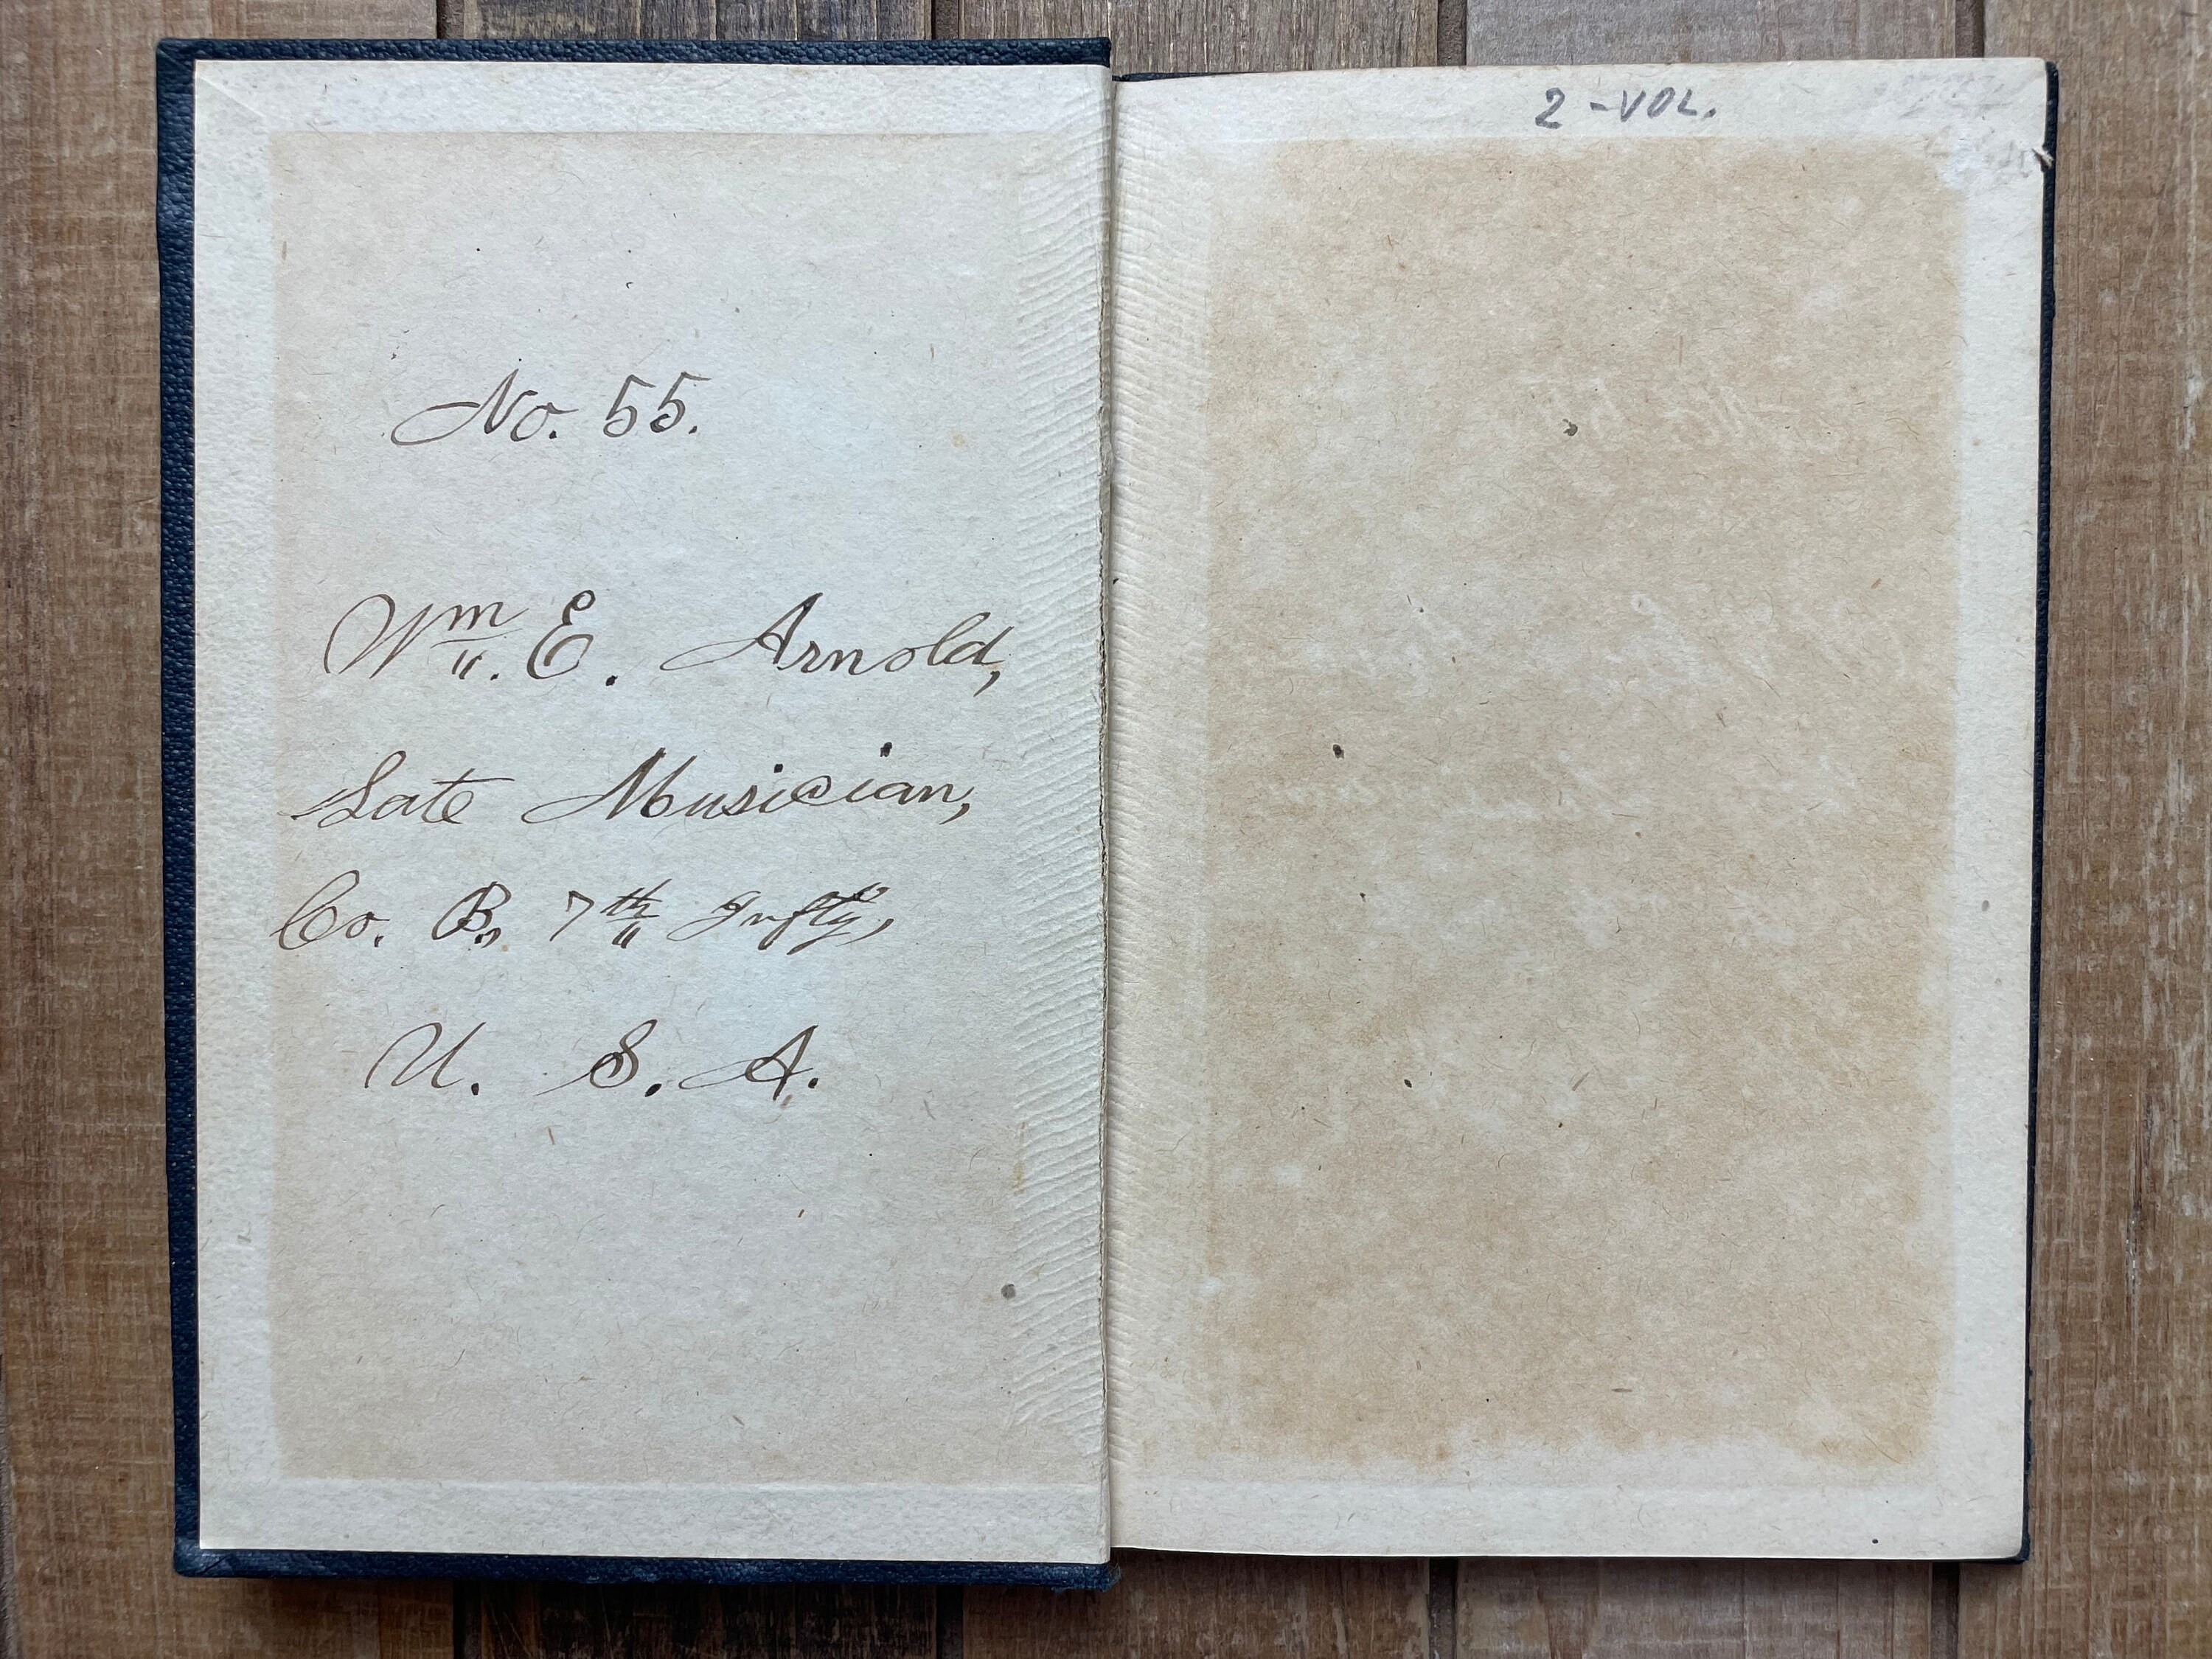 No. 55.
Wm. E. Arnold,
Late Musician,
Co. B., 7th Infty,
U. S. A.
2 - VOL.